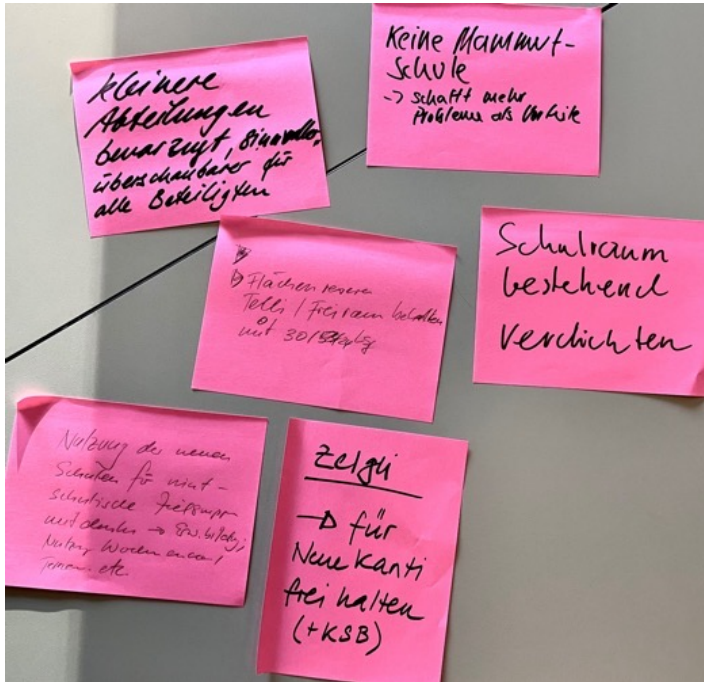 kleinere
Abteilungen
bevorzugt, sinnvoller,
überschaubarer für
alle Beteiligten
Keine Mammut-
Schule
-> schafft mehr
Probleme als Vorteile
Flächenreserven
Telli / Freiraum behalten
mit 30/
Schulraum
bestehend
verdichten
Nutzung der neuen
Schulen für nicht-
schulische
mitdenken ->
Nutzung Wochenende,
etc.
Zelgli
-> für
Neue Kanti
frei halten
(+KSB)